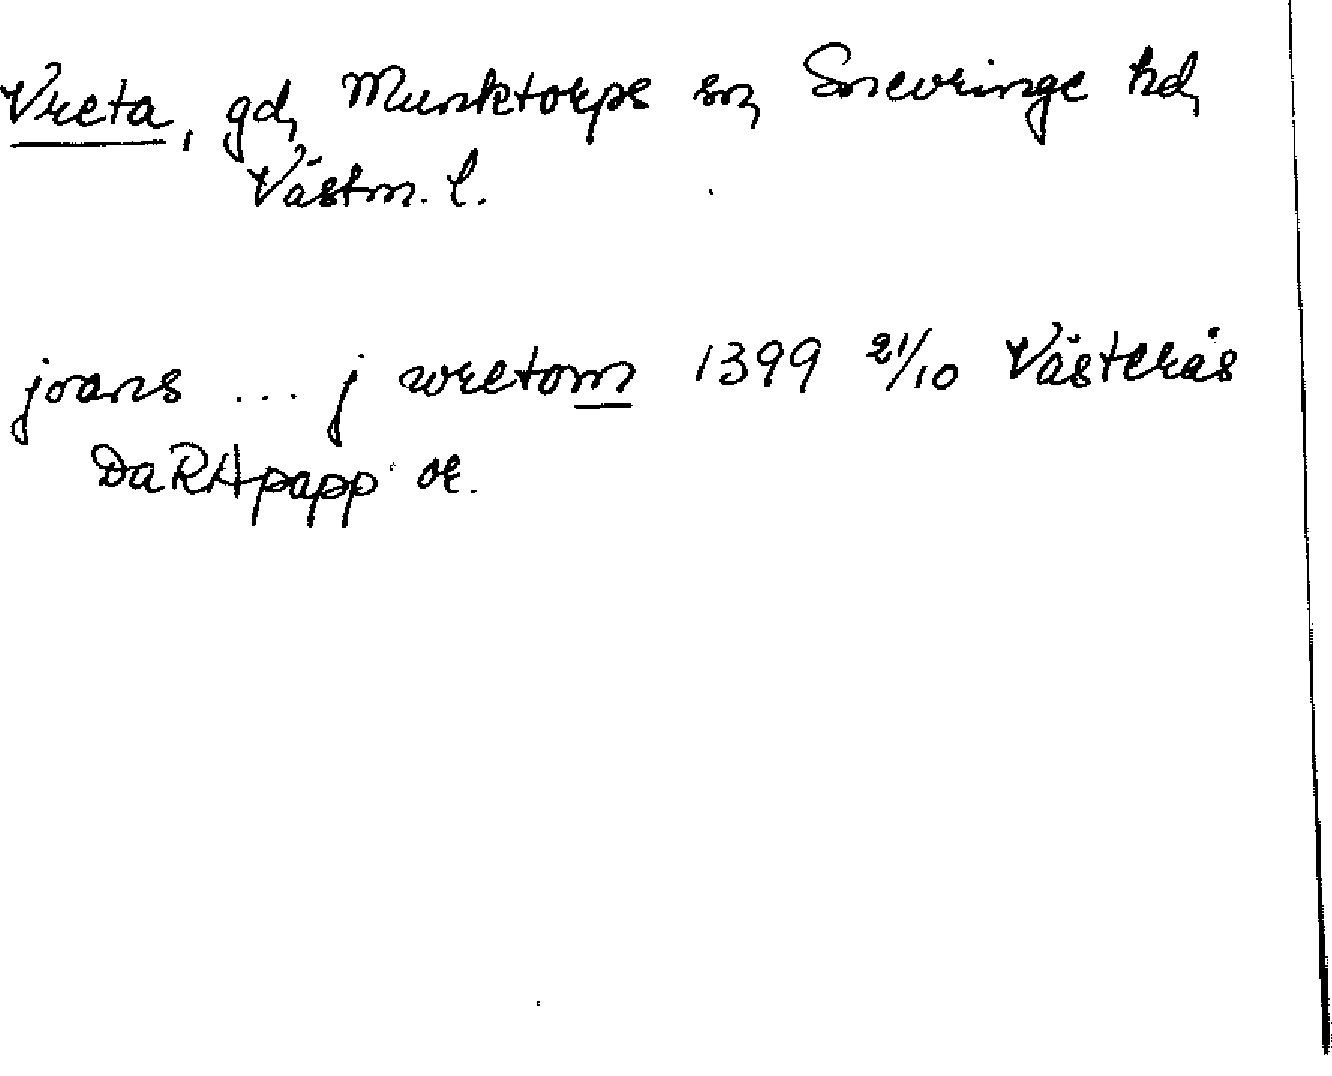 Vreta, gd, Munktorps sn, Snevringe hd,
Västm. l.
joans ... j wretom 1399 21/10 Västerås
DaRApapp or.